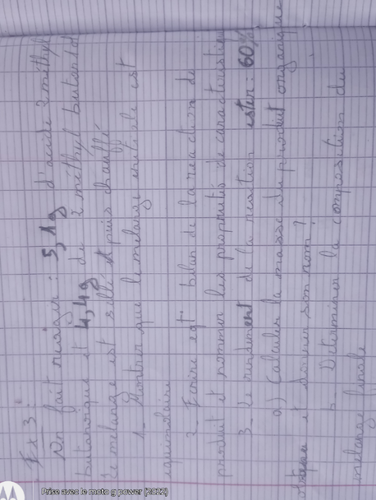 Ex 3:
On fait réagir : 5,1g d'acide 2 méthyl
butanoïque et 4,4g de 2 méthyl butanol
le mélange est scellé et puis chauffé
1- Montrer que le mélange initiale est
equimolaire
2- Ecrire eqt bilan de la reaction de
produit et nommer les propriétés de caractéristique
3- le rendement de la reaction ester : 60%
a) Calculer la masse du produit organique
et donner son nom?
b- Determiner la composition du
mélange finale
Prise avec le moto g power (2022)